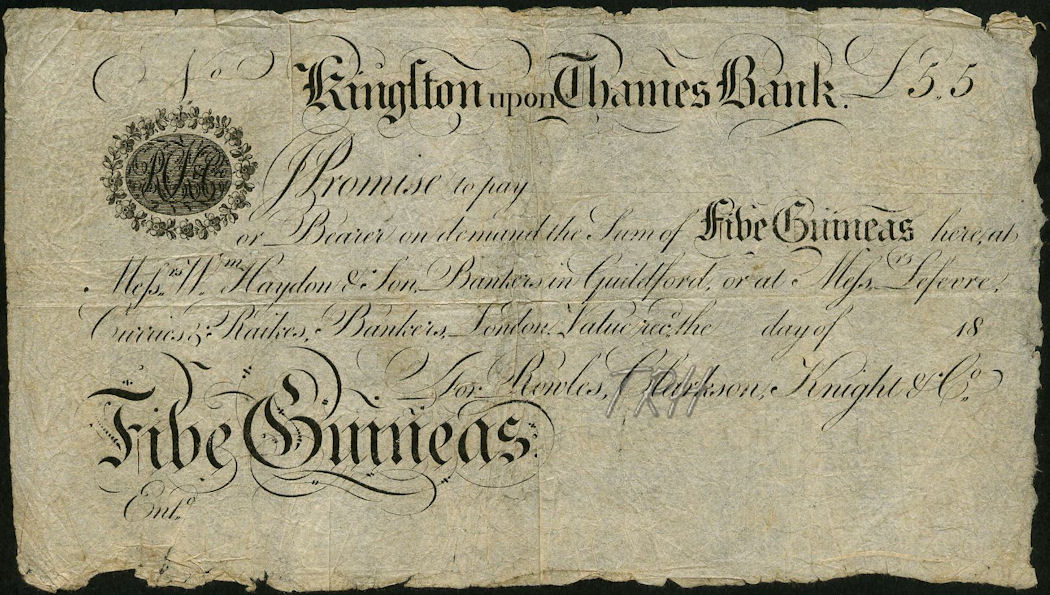 No Kingſton upon Thames Bank. £5,,5
RCK&Co
I Promise to pay
or Bearer on demand the Sum of Five Guineas here, at
Meſs.rs W.m Haydon & Son, Bankers in Guildford, or at Meſs.rs Lefevre,
Curries & Raikes, Bankers, London. Value rec.d the day of 18
For Rowles, Clarkson, Knight & Co.
TRH
Five Guineas.
Ent.d